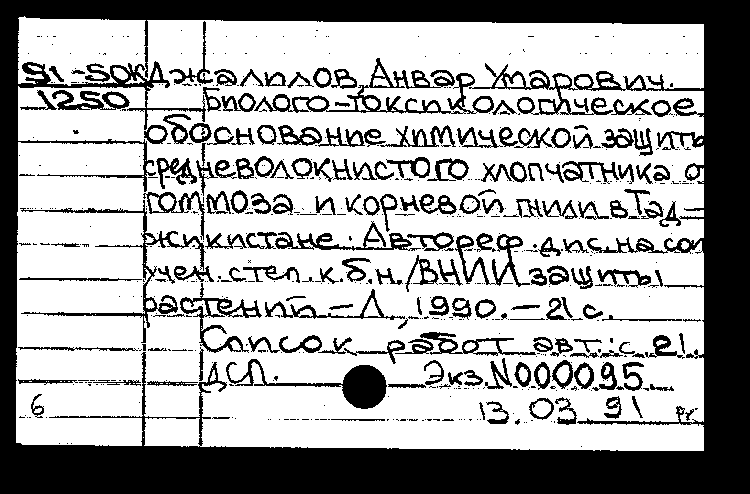 91-50К Джалилов, Анвар Умарович.
1250 Биолого-токсикологическое
обоснование химической защиты
средневолокнистого хлопчатника о
гоммоза и корневой гнили в Тад-
жикистане. Автореф. дис. на соп
учен. степ. к.б.н. /ВНИИ защиты
растений. - Л., 1990. - 21 с.
Список работ авт.: с. 21.
ДСП. Экз. N000095
6 13.03 91